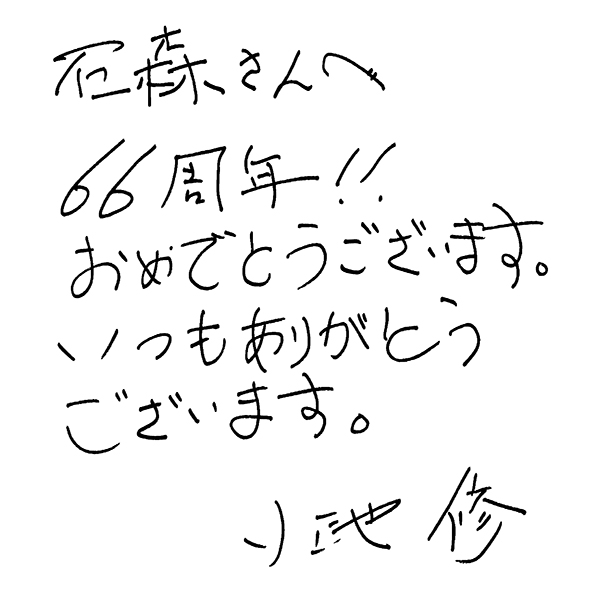 石森さんへ
66周年!!
おめでとうございます。
いつもありがとう
ございます。
小池 修